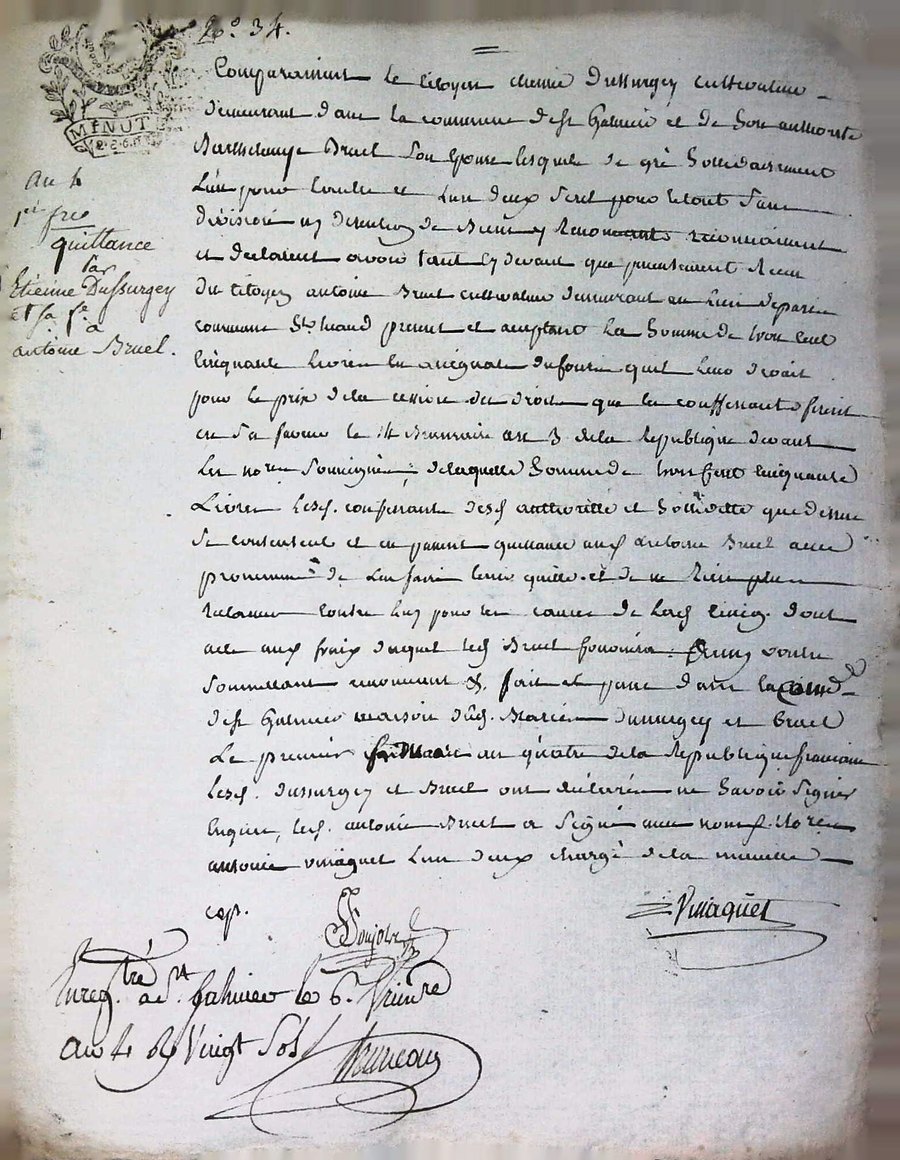 N.° 34.
MINUT
An 4
1er fre
quittance
par
Etienne Dussurgey
et sa fe. a
antoine Bruel.
Comparaissent le Citoyen etienne Dussurgey cultivateur
demeurant dans la commune de st Galmier et de son authorité
Bruel son epouse lesquels de gré solidairement
L'un pour l'autre et l'un deux seul pour le tout sans
division ni de Biens reconnaissent
et declarent avoir tant cy devant que presentement Receu
du Citoyen antoine Bruel cultivateur demeurant au lieu
commune St present et acceptant La somme de trois cent
cinquante livres en assignats quil leur devait
pour le prix de la cession des droits que les confessants firent
en sa faveur le 14 Brumaire an 3 de la republique devant
Les nores soussignés, de laquelle somme de trois cent cinquante
Livres Lesd. confessants authorité et que dessus
se contentent et en passent quittance aud. antoine Bruel avec
promesse de L'en faire tenir quitte et de ne Rien plus
reclamer contre Luy pour les causes de dont
acte aux fraix duquel led Bruel
soumettant renoncent &. fait et passé dans la
de st Galmier maison dud. Dussurgey et Bruel
Le premier frimaire an quatre de la Republique francaise
Lesd. Dussurgey et Bruel ont déclarés ne savoir signer
Enquis, led. antoine Bruel a signé avec nous d. Nores
antoine vinaguet L'un deux chargé de la minutte
exp.
Vinaguet
Enreg.tré a st. Galmier le 6 frimre
an 4 Rç Vingt Sols